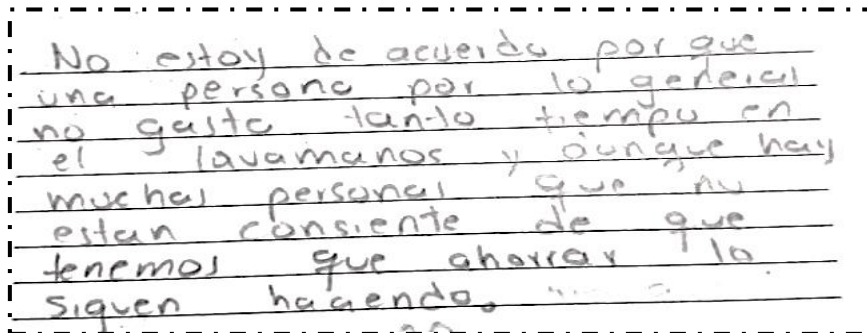 No estoy de acuerdo por que
una persona por lo general
no gasta tanto tiempo en
el lavamanos y aunque hay
muchas personas que no
estan consiente de que
tenemos que ahorrar lo
siguen haciendo.